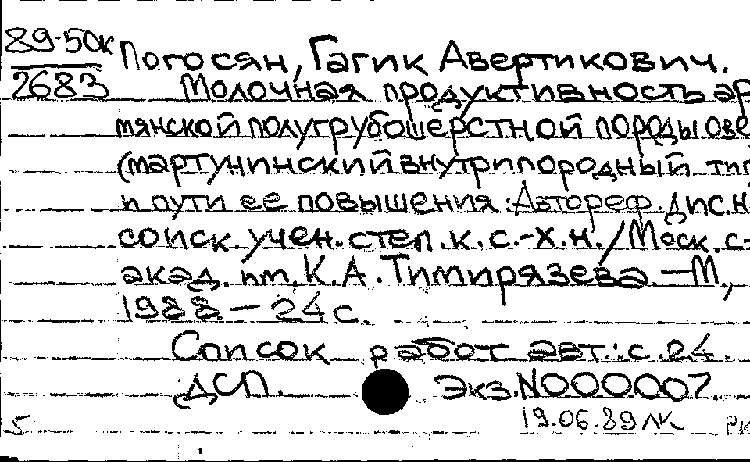 89-50к
2683
Погосян, Гагик Авертикович.
Молочная продуктивность ар
мянской полугрубошерстной породы ове
(мартунинский внутрипородный тип
и пути ее повышения: Автореф. дис. н
соиск. учен. степ. к. с.-х. н. / Моск. с-
акад. им. К. А. Тимирязева. — М.,
1988 — 24 с.
Список работ авт.: с. 24.
ДСП. Экз. N000007.
5 19.06.89